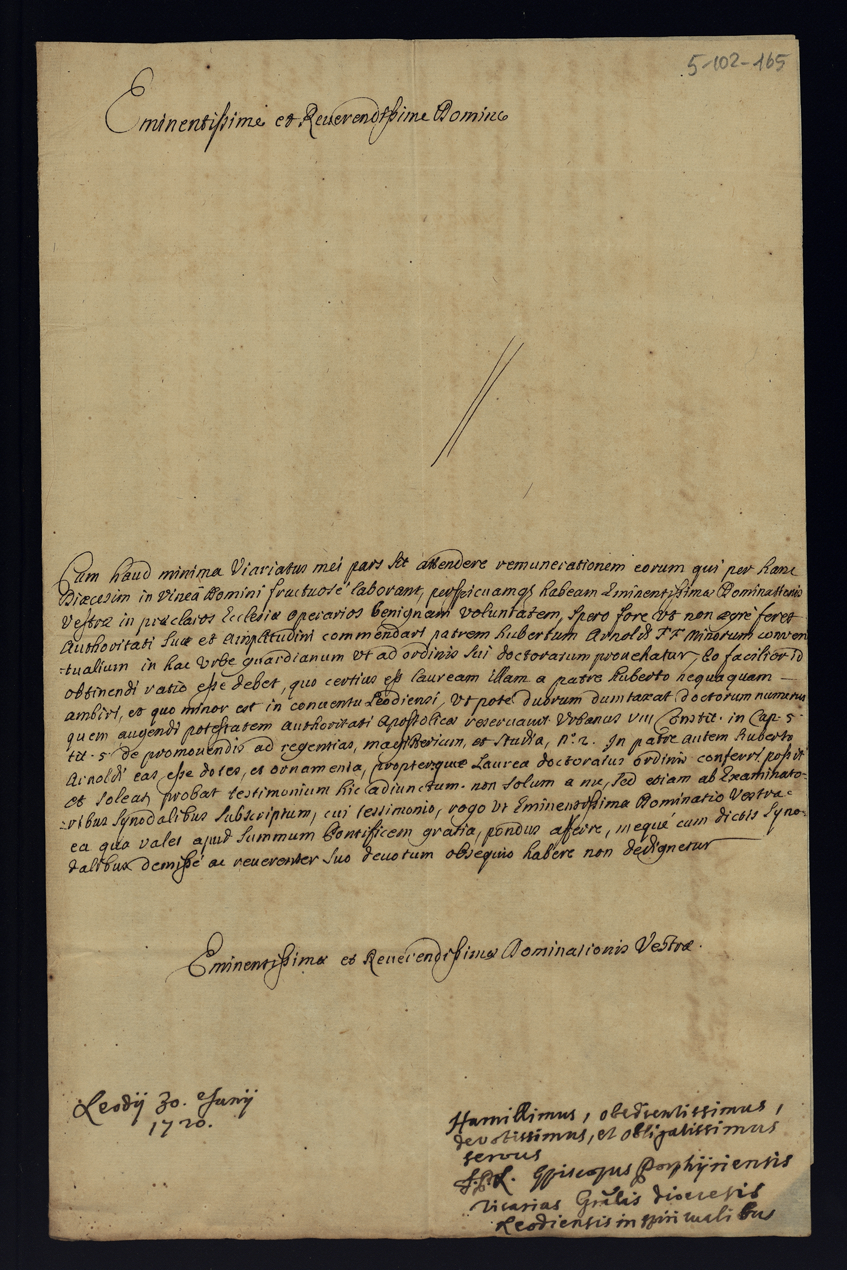 5-102-165
Eminentissime et Reuerendissime Domine
Cum haud minima Viariatus mei pars sit attendere remunerationem eorum qui per hanc
Diæcesim in vineâ Domini fructuosé laborant, perspicuamqȝ habeam Eminentissimæ Dominationis
Vestræ in præclaros Ecclesiæ operarios benignam voluntatem, spero fore vt non ægré feret
Authoritati Suæ et amplitudini commendari patrem hubertum Arnoldi FF Minorum conven
-tualium in hac vrbe guardianum vt ad ordinis sui doctoratum prouehatur, Eo facilior id
obtinendi ratio esse debet, quo certius est lauream illam a patre huberto nequaquam
ambiri, et quo minor est in conuentu Leodiensi, vt poté duorum dumtaxat doctorum numerus
quem augendi potestatem authoritati Apostolicæ reseruauit Vrbanus VIII Constit. in Cap. 5
tit. 5 de promouendis ad regentias, magisterium, et studia, n.º 2. In patre autem huberto
Arnoldi eas esse dotes, et ornamenta, propter quæ Laurea doctoratus ordinis conferri possit
et soleat, probat testimonium hic adiunctum non solum a me, sed etiam ab Examinato-
-ribus synodalibus subscriptum, cui testimonio, rogo vt Eminentissima Dominatio Vestra
ea qua valet apud summum Pontificem gratia, pondus afferre, mequé cum dictis syno-
dalibus demissé ac reuerenter suo deuotum obsequio habere non dedignetur
Eminentissimæ et Reuerendissimæ Dominationis Vestræ.
Leodij 30. Junij
1720.
Humillimus, obedientissimus,
devotissimus, et obligatissimus
servus
Episcopus Porphijriensis
vicarius Grālis diœcesis
Leodiensis in spiritualibus